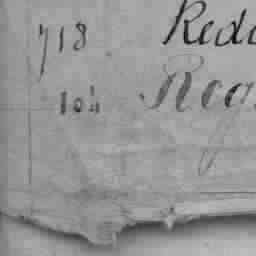 718 Redd
104 Reg